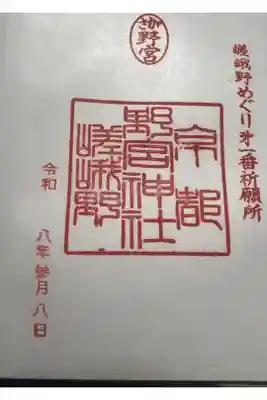 さが野宮
嵯峨野めぐり㐧一番祈願所
京都
野宮神社
嵯峨野
令和 八年参月八日